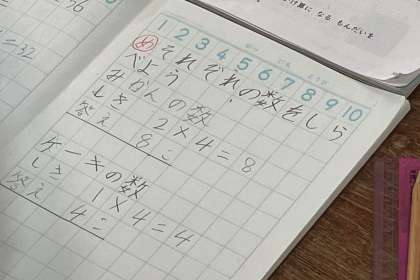 1 2 3 4 5 6 7 8 9 10
め それぞれの数をしら
べよう!
みかんの数
しき 2×4=8
答え 8こ
ケーキの数
しき 1×4=4
答え 4こ
なる もんだいを
=32